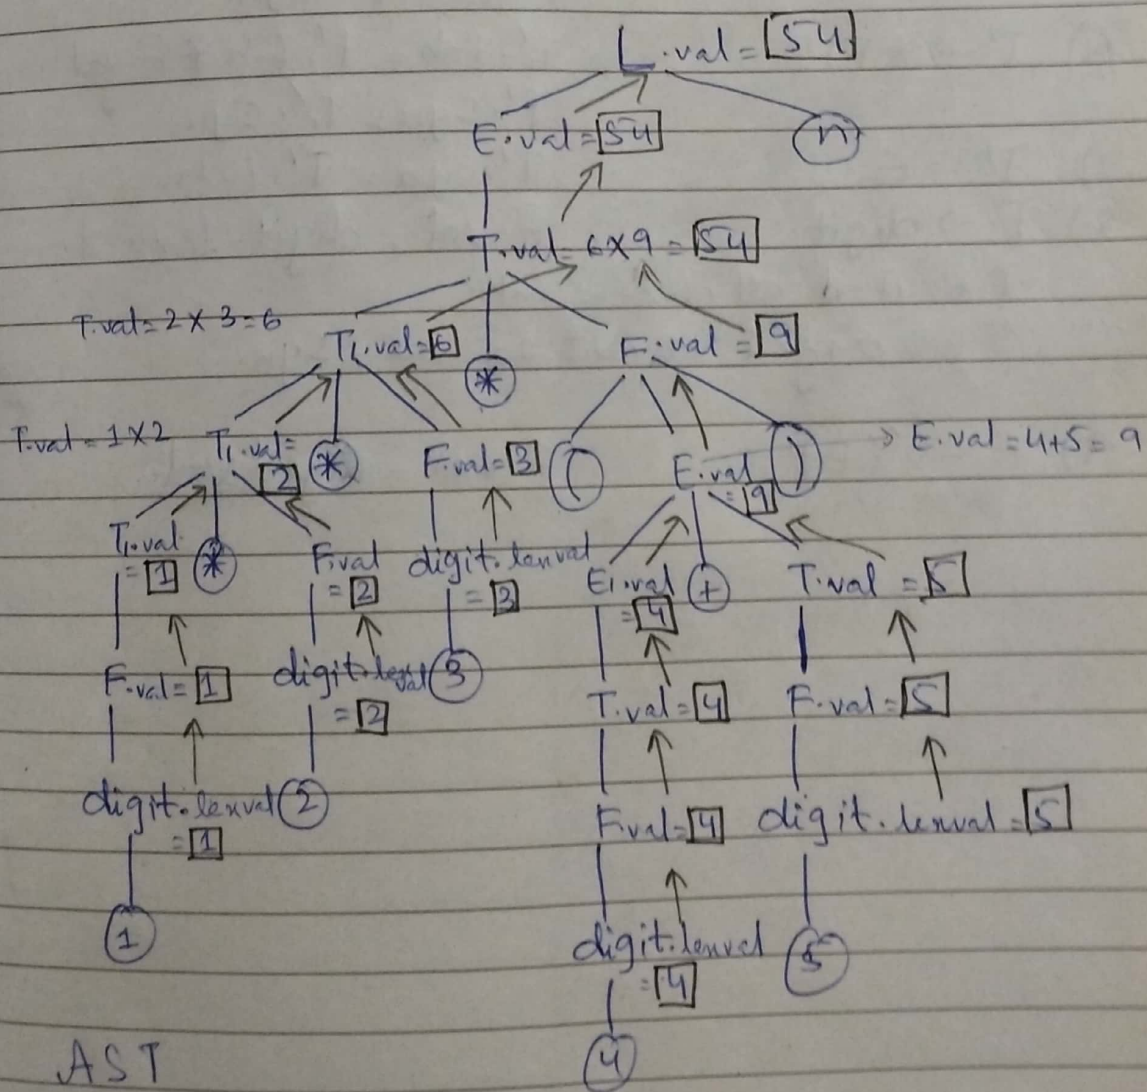 L.val = 54
E.val = 54 n
T.val = 6x9 = 54
T.val = 2 x 3 = 6
T₁.val = 6 * F.val = 9
T.val = 1x2 T₁.val = 2 * F.val = 3 ( E.val = 9 ) > E.val = 4+5 = 9
T₁.val = 1 * F.val = 2 digit.lexval = 3 E₁.val = 4 + T.val = 5
F.val = 1 digit.lexval = 2 3 T.val = 4 F.val = 5
digit.lexval = 1 2 F.val = 4 digit.lexval = 5
1 digit.lexval = 4 5
AST 4